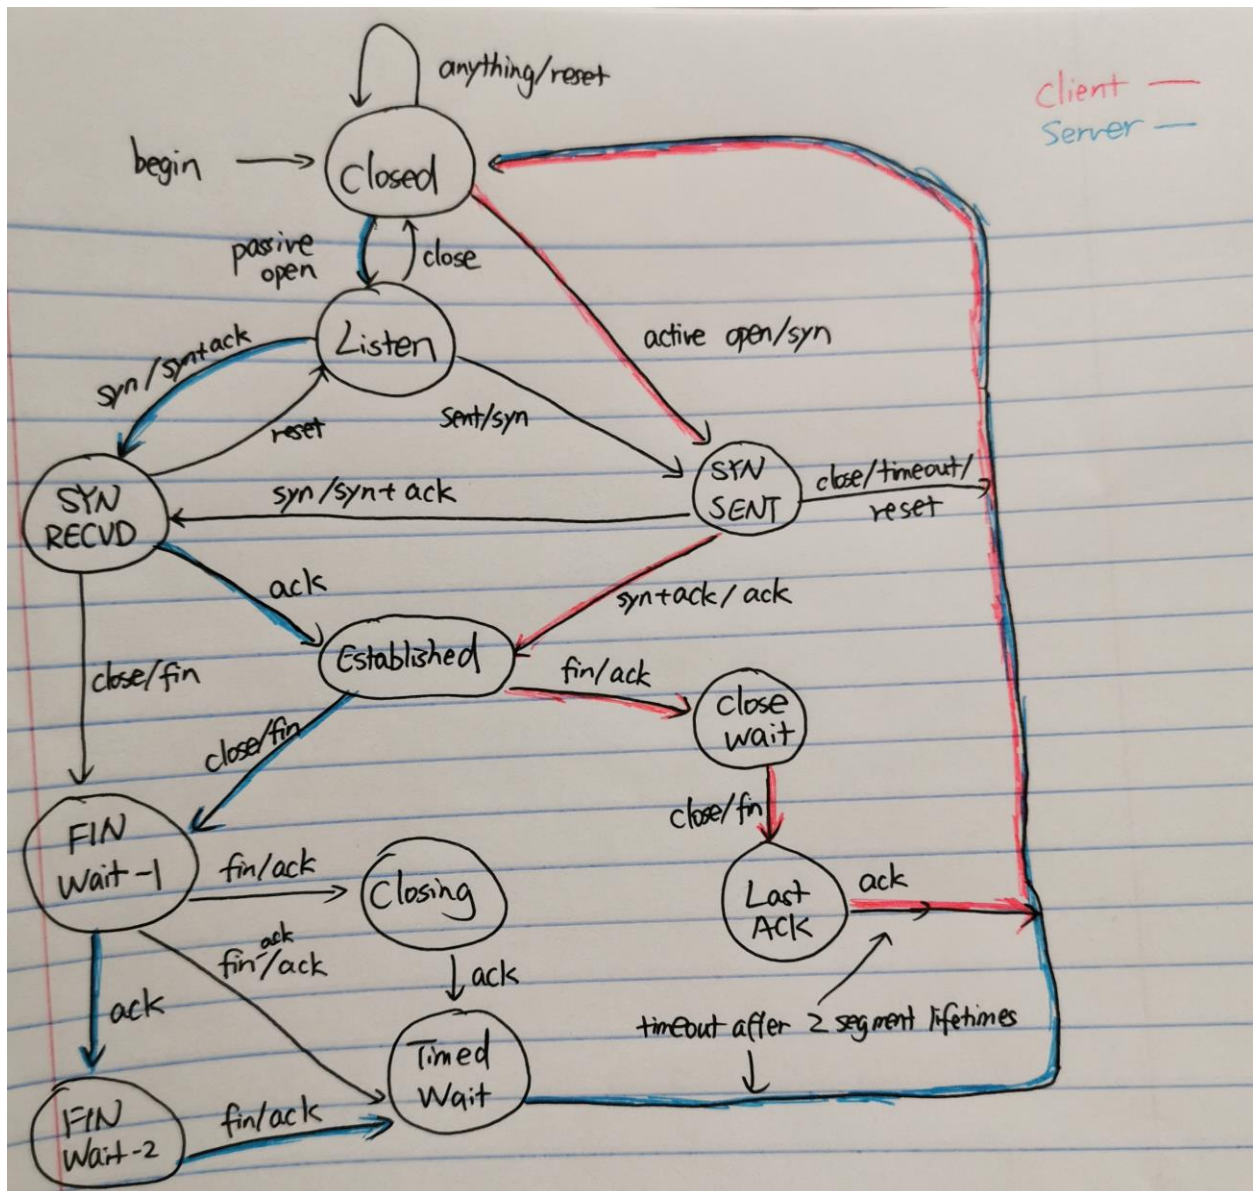 anything/reset
Client
Server
begin
Closed
passive
open
close
Listen
active open/syn
syn/syn+ack
reset
Sent/syn
SYN
RECVD
syn/syn+ack
SYN
SENT
close/timeout/
reset
ack
syn+ack/ack
Established
fin/ack
close/fin
close/fin
Close
wait
close/fin
FIN
Wait-1
fin/ack
Closing
Last
ACK
ack
fin-ack/ack
ack
ack
timeout after 2 segment lifetimes
Timed
Wait
FIN
Wait-2
fin/ack